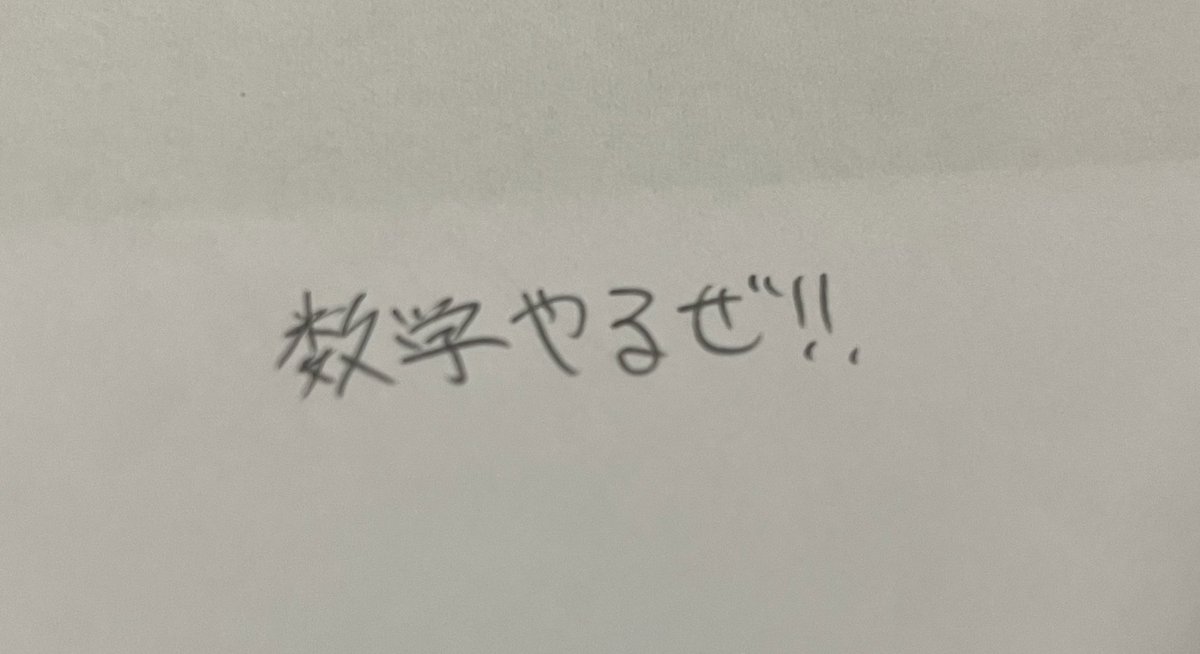 数学やるぜ!!